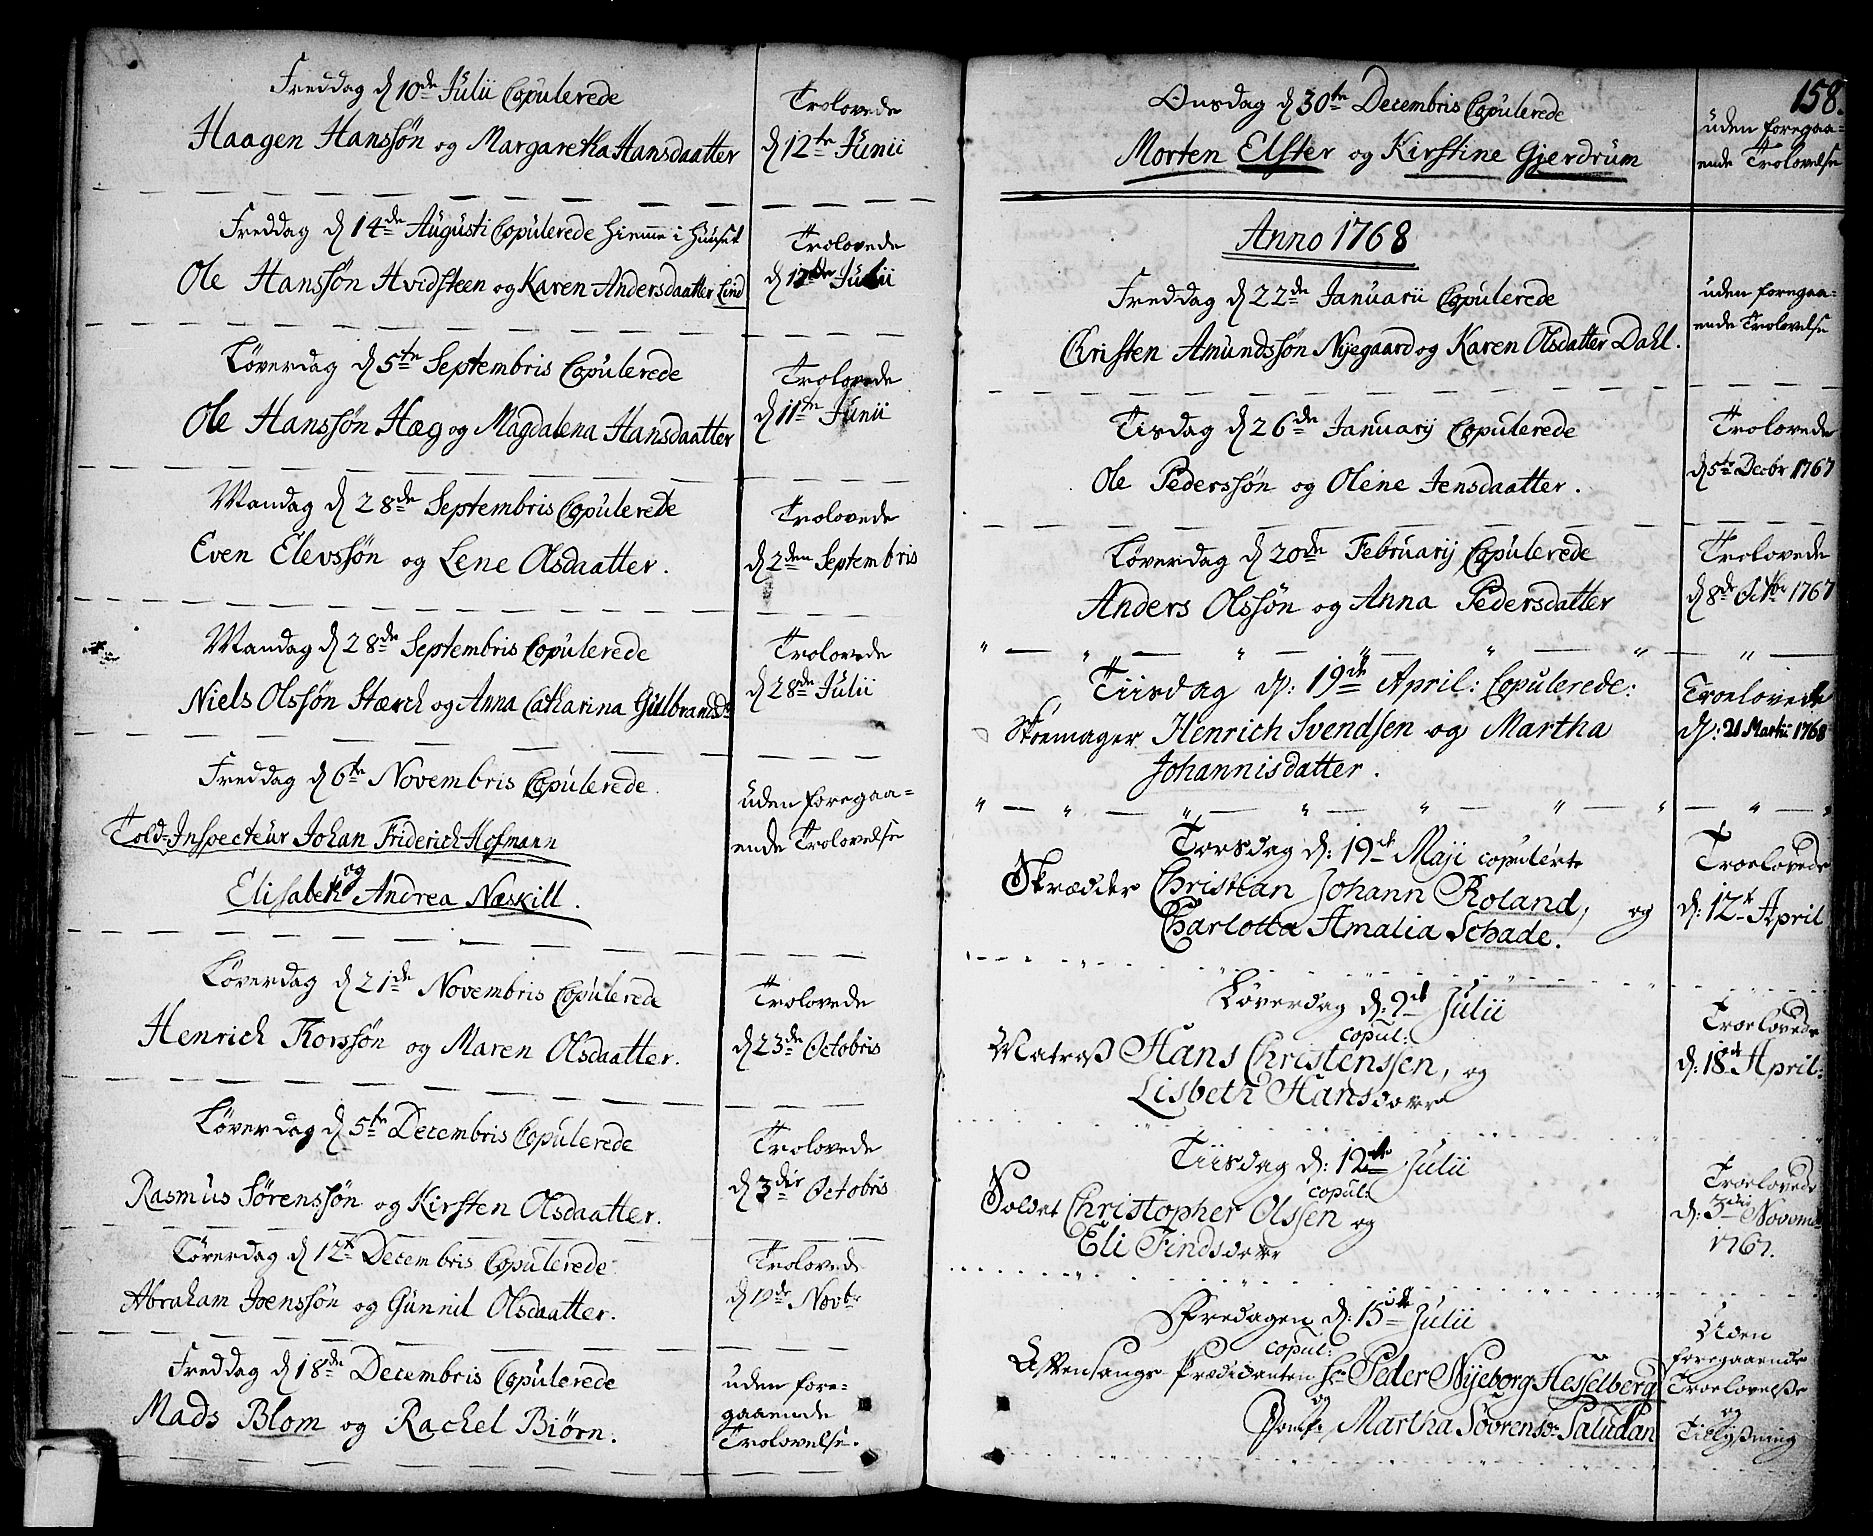 Freddag d 10de Julii Copulerede
Haagen Hanssøn og Margaretha Hansdaatter
Trolovede
d 12te Junii
Freddag d 14de Augusti Copulerede hiemme i Huuset
Ole Hanssøn Hvidsteen og Karen Andersdaatter Lind
Trolovede
d 17de Julii
Løverdag d 5te Septembris Copulerede
Ole Hanssøn Hæg og Magdalena Hansdaatter
Trolovede
d 11te Junii
Mandag d 28de Septembris Copulerede
Even Elevssøn og Lene Olsdaatter.
Trolovede
d 2den Septembris
Mandag d 28de Septembris Copulerede
Niels Olssøn Stærch og Anna Catharina Gulbrandsd:
Trolovede
d 28de Julii
Freddag d 6te Novembris Copulerede
Told-Inspecteur Johan Friderich Hofmann
og
Elisabeth Andrea Næskill.
uden foregaa=
ende Trolovelse
Løverdag d 21de Novembris Copulerede
Henrich Thorssøn og Maren Olsdaatter.
Trolovede
d 23de Octobris
Løverdag d 5te Decembris Copulerede
Rasmus Sørenssøn og Kirsten Olsdaatter.
Trolovede
d 3die Octobris
Løverdag d 12te Decembris Copulerede
Abraham Joenssøn og Gunnil Olsdaatter.
Trolovede
d 19de Novbr
Freddag d 18de Decembris Copulerede
Mads Blom og Rachel Biørn.
uden fore=
gaaende
Trolovelse.
158.
Onsdag d 30te Decembris Copulerede
Morten Elster og Kirstine Gjerdrum
uden foregaa=
ende Trolovelse
Anno 1768
Freddag d 22de Januarii Copulerede
Christen Amundssøn Nyegaard og Karen Olsdatter Dahl.
uden foregaa=
ende Trolovelse
Tisdag d 26de Januarij Copulerede
Ole Pederssøn og Olene Jensdaatter.
Trolovede
d 5te Decbr 1767
Løverdag d 20de Februarij Copulerede
Anders Olssøn og Anna Pedersdatter
Trolovede
d 8de Octbr 1767
Tiisdag d: 19de April: Copulerede:
Skoemager Henrich Svendsen og Martha
Johannisdatter.
Troelovede
d: 21 Martii 1768
Torsdag d: 19de Maji copulerte
Skrædder Christian Johann Roland, og
Charlotta Amalia Schade.
Troelovede
d: 12te April
Løverdag d: 9de Julii
copul:
Matros Hans Christenssen, og
Lisbeth Hansdatter
Troelovede
d: 18de April:
Tiisdag d: 12te Julii
copul:
Soldat Christopher Olssen og
Eli Findsdatter
Troelovede
d: 3die Novemb
1767.
Fredagen d: 15de Julii
copul:
Aftensangs-Prædicanten Hr Peder Nyeborg Hesselberg
og
Jomfr. Martha Søvrensdr Saludan
Uden
foregaaende
Troelovelse
og
Tillysning